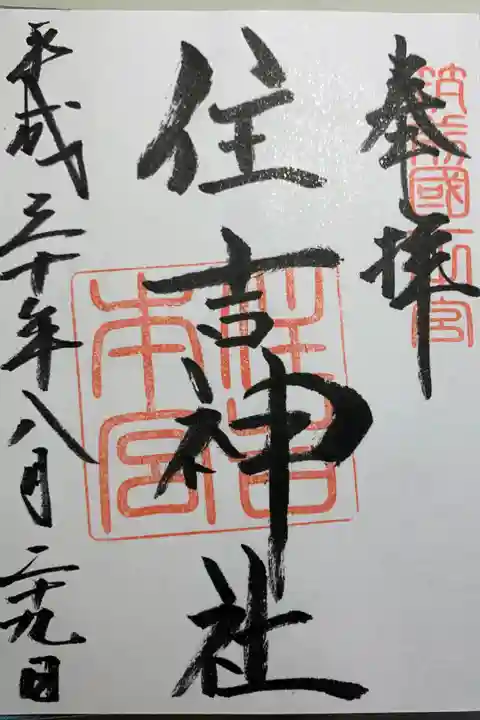 奉拝
筑前國一之宮
住吉神社
住吉本宮
平成三十年八月二十九日